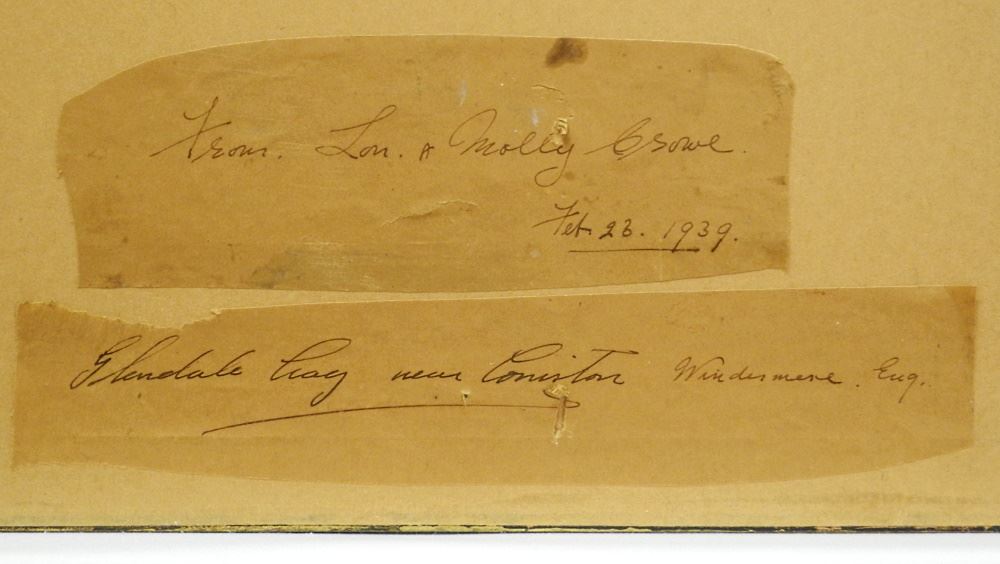 From. Lon. & Molly Crowe.
Feb. 23. 1939.
Glendale Crag near Coniston Windermere. Eng.